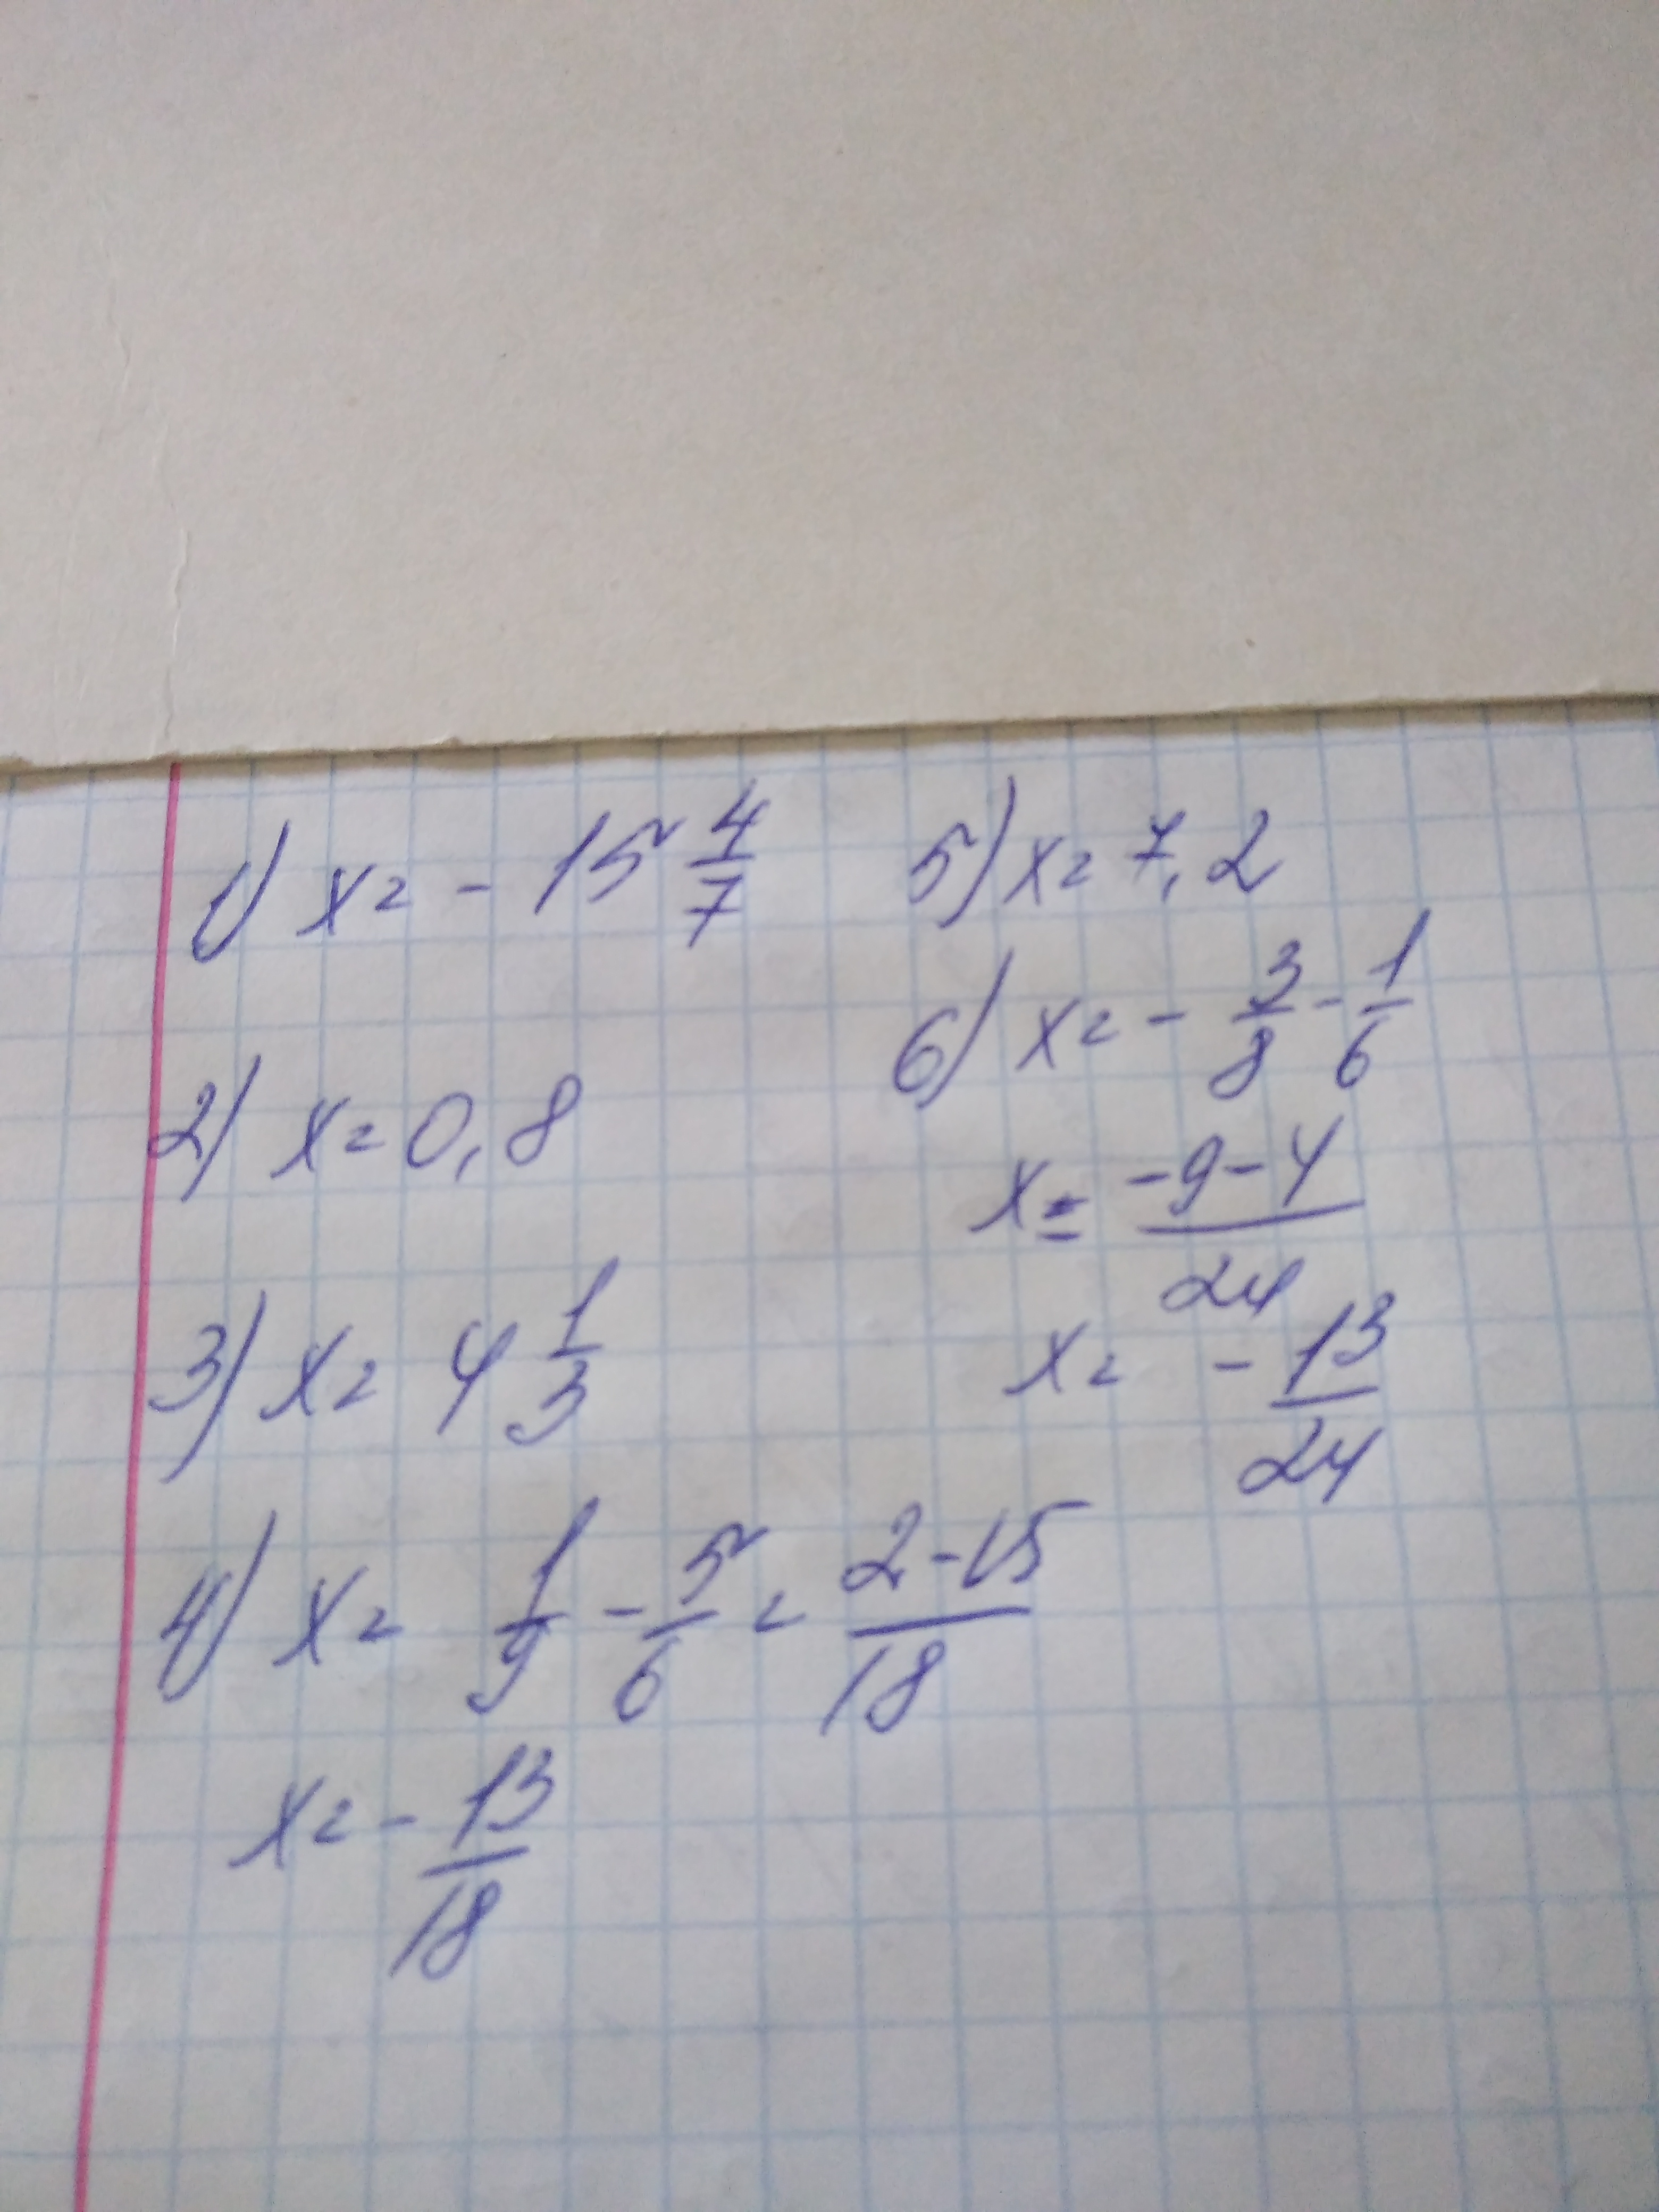 1) x = - 15 4/7
2) x = 0,8
3) x = 4 1/3
4) x = 1/9 - 5/6 = (2-15)/18
x = - 13/18
5) x = 7,2
6) x = - 3/8 - 1/6
x = (-9-4)/24
x = - 13/24